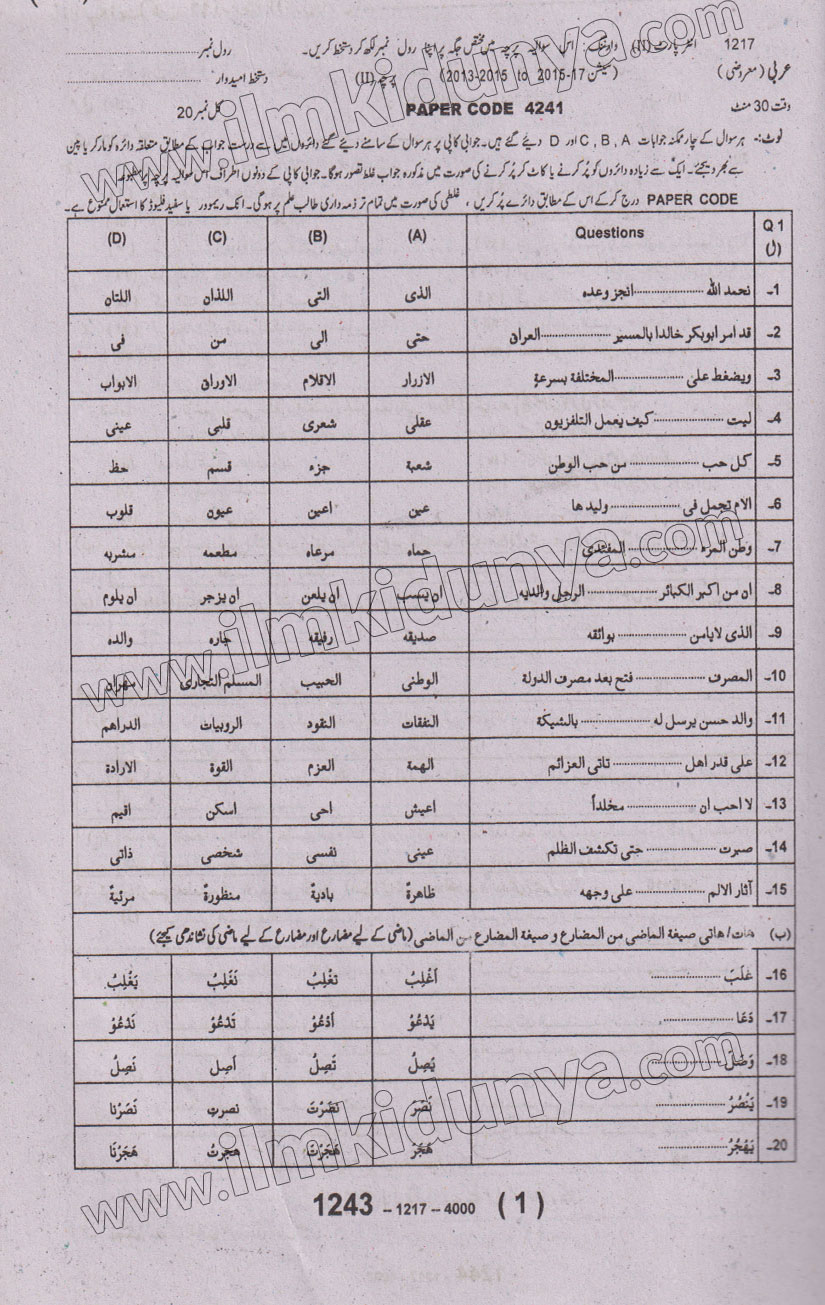 1217 انٹر پارٹ (II) وارننگ: اس سوالیہ پرچہ میں مختص جگہ پر اپنا رول نمبر لکھ کر دستخط کریں۔ رول نمبر
عربی (معروضی) (سیشن 17-2015 to 2013-2015) پرچہ (II) دستخط امیدوار
وقت 30 منٹ PAPER CODE 4241 کل نمبر 20
نوٹ:- ہر سوال کے چار ممکنہ جوابات A , B , C اور D دیئے گئے ہیں۔ جوابی کاپی پر ہر سوال کے سامنے دیئے گئے دائروں میں سے درست جواب کے مطابق متعلقہ دائرہ کو مارکر یا پین
سے بھر دیجئے۔ ایک سے زیادہ دائروں کو پُر کرنے یا کاٹ کر پُر کرنے کی صورت میں مذکورہ جواب غلط تصور ہوگا۔ جوابی کاپی کے دونوں اطراف اس سوالیہ پرچہ پر مطبوعہ
PAPER CODE درج کر کے اس کے مطابق دائرے پُر کریں ، غلطی کی صورت میں تمام تر ذمہ داری طالب علم پر ہوگی۔ انک ریموور یا سفید فلیوڈ کا استعمال ممنوع ہے۔
Q 1 (ل) Questions (A) (B) (C) (D)
1۔ نحمد الله ........ انجز وعدہ الذی التی اللذان اللتان
2۔ قد امر ابوبکر خالدا بالمسیر ........ العراق حتی الی من فی
3۔ ویضغط علی ........ المختلفة بسرعة الازرار الاقلام الاوراق الابواب
4۔ لیت ........ کیف یعمل التلفزیون عقلی شعری قلبی عینی
5۔ کل حب ........ من حب الوطن شعبة جزء قسم حظ
6۔ الام تجمل فی ........ ولیدها عین اعین عیون قلوب
7۔ وطن المرء ........ المفتدی حماه مرعاه مطعمه مشربه
8۔ ان من اکبر الکبائر ........ الرجل والدیه ان یسب ان یلعن ان یزجر ان یلوم
9۔ الذی لایامن ........ بوائقه صدیقه رفیقه جاره والده
10۔ المصرف ........ فتح بعد مصرف الدولة الوطنی الحبیب المسلم التجاری مهران
11۔ والد حسن یرسل له ........ بالشیکة النفقات النقود الروبیات الدراهم
12۔ علی قدر اهل ........ تاتی العزائم الهمة العزم القوة الارادة
13۔ لا احب ان ........ مخلداً اعیش احی اسکن اقیم
14۔ صبرت ........ حتی تکشف الظلم عینی نفسی شخصی ذاتی
15۔ آثار الالم ........ علی وجهه ظاهرةً بادیةً منظورةً مرئیةً
(ب) هات/هاتی صیغة الماضی من المضارع و صیغة المضارع من الماضی (ماضی کے لیے مضارع اور مضارع کے لیے ماضی کی نشاندہی کیجئے)
16۔ غَلَبَ ........ اَغْلِبُ تَغْلِبُ نَغْلِبُ یَغْلِبُ
17۔ دَعَا ........ یَدْعُوْ اَدْعُوْ تَدْعُوْ نَدْعُوْ
18۔ وَصَلَ ........ یَصِلُ تَصِلُ اَصِل نَصِلُ
19۔ یَنْصُرُ ........ نَصَرَ نَصَرْتَ نصرتِ نَصَرْنا
20۔ یَهْجُرُ ........ هَجَرَ هَجَرْتَ هَجَرْتُ هَجَرْنَا
1243 -- 1217 -- 4000 ( 1 )
www.ilmkidunya.com
www.ilmkidunya.com
www.ilmkidunya.com